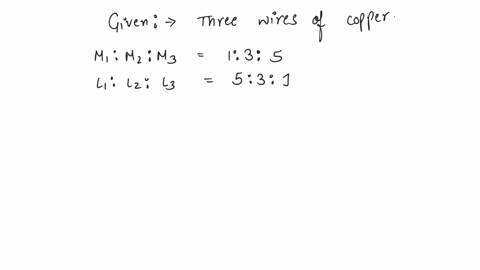 Given:→ Three wires of copper.
M₁:M₂:M₃ = 1:3:5
L₁:L₂:L₃ = 5:3:1